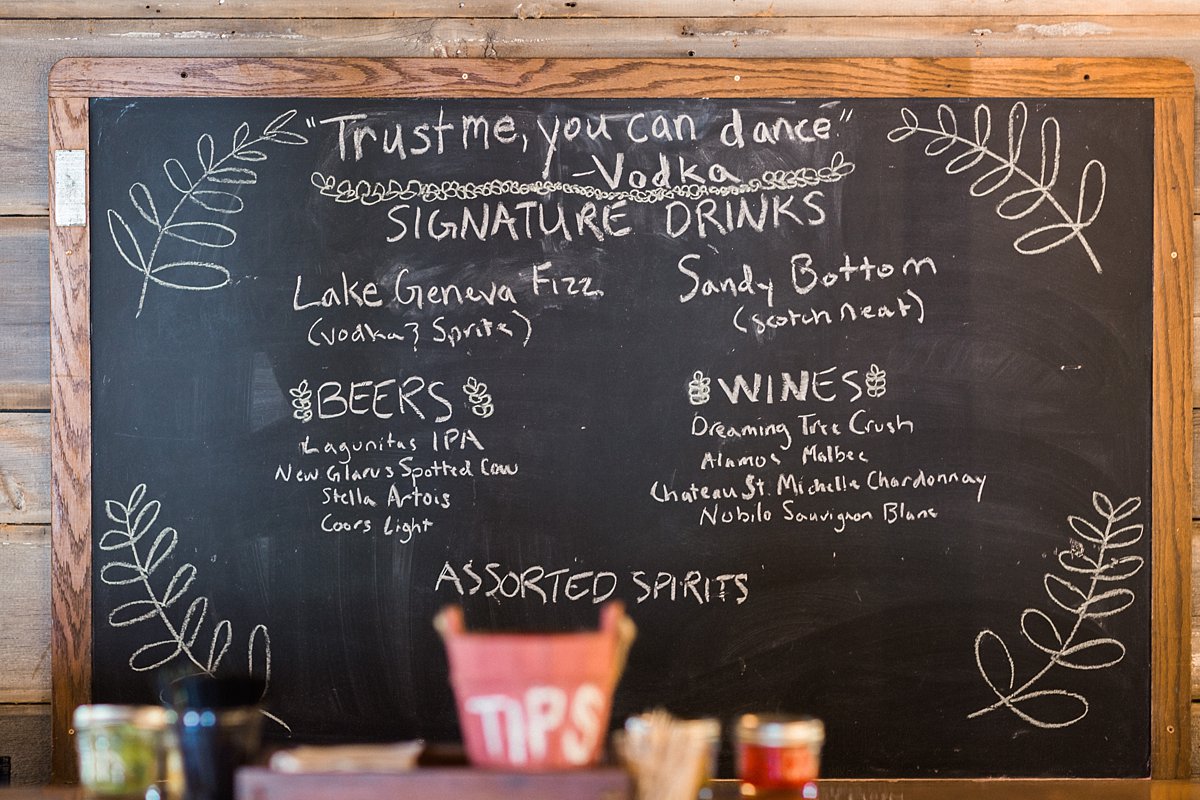 "Trust me, you can dance"
-Vodka
SIGNATURE DRINKS
Lake Geneva Fizz
(vodka & Sprite)
Sandy Bottom
(scotch neat)
BEERS
Lagunitas IPA
New Glarus Spotted Cow
Stella Artois
Coors Light
WINES
Dreaming Tree Crush
Alamos Malbec
Chateau St. Michelle Chardonnay
Nobilo Sauvignon Blanc
ASSORTED SPIRITS
TIPS